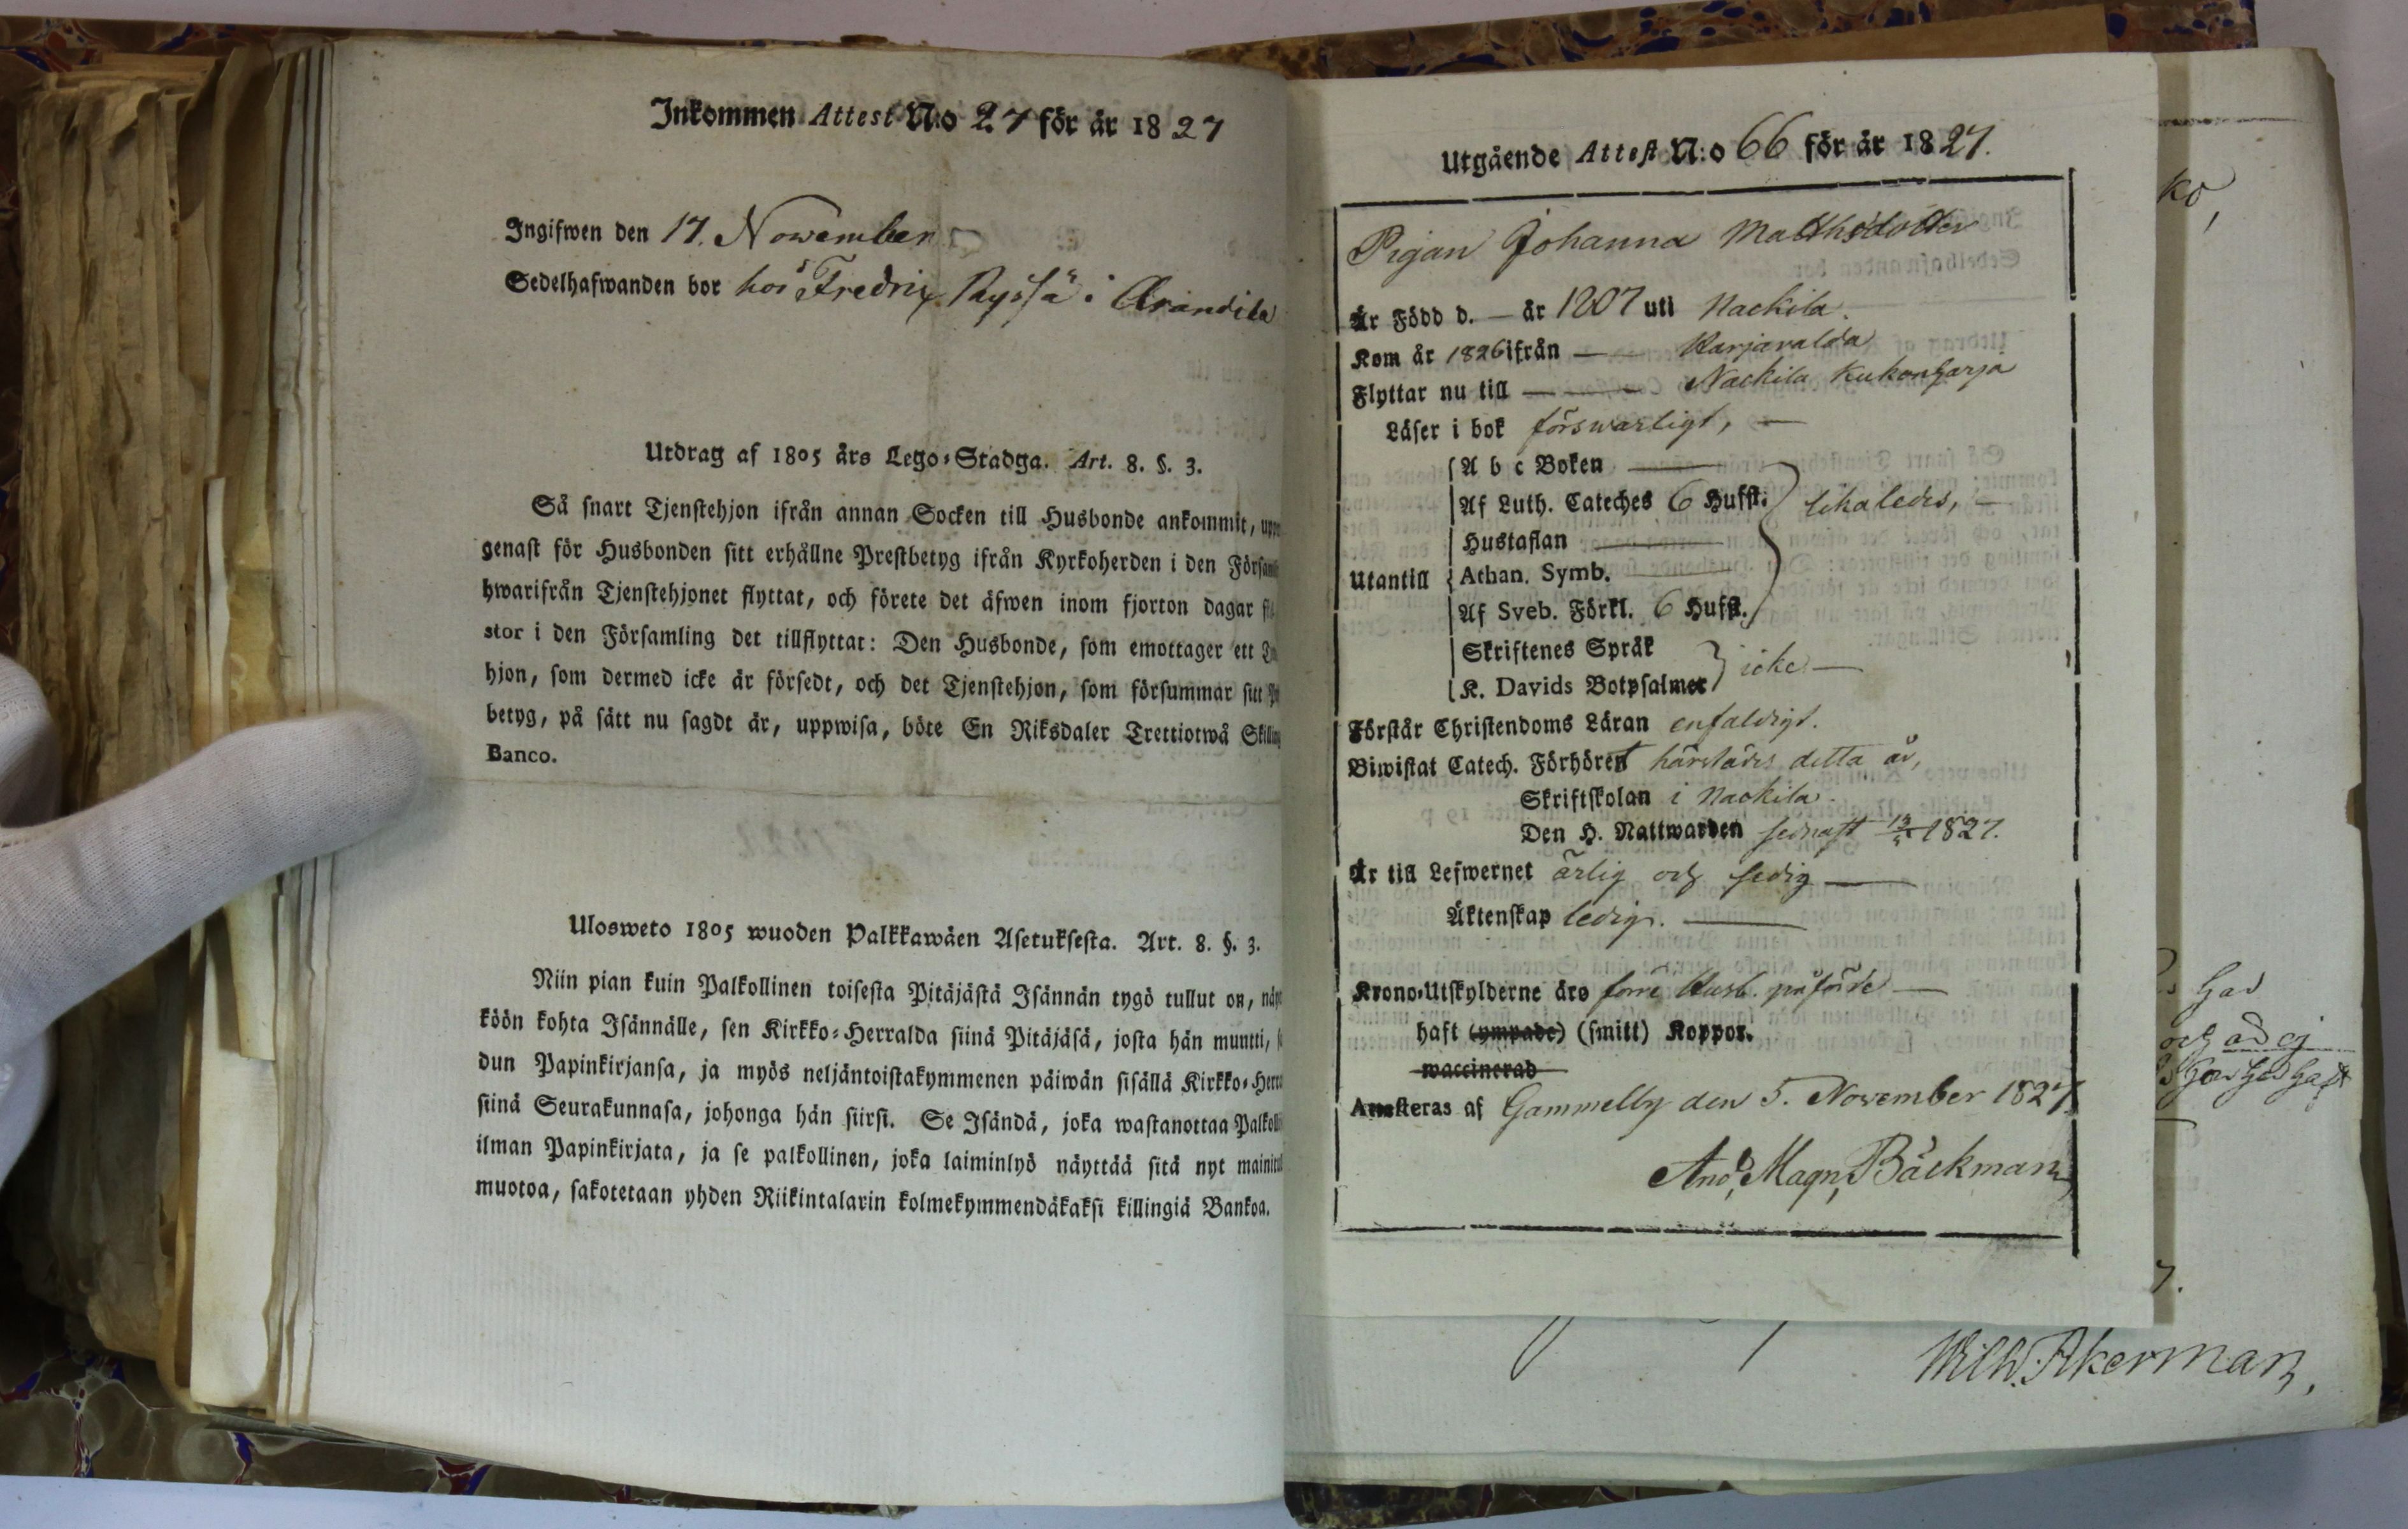 Inkommen Attest N:o 27 för år 1827
Ingifwen den 17. November
Sedelhafwanden bor hos Fredrix Ryssä i Arandila
Utdrag af 1805 års Lego-Stadga. Art. 8. §. 3.
Så snart Tjenstehjon ifrån annan Socken till Husbonde ankommit,
genast för Husbonden sitt erhållne Prestbetyg ifrån Kyrkoherden i den
hwarifrån Tjenstehjonet flyttat, och förete det äfwen inom fjorton dagar
stor i den Församling det tillflyttat: Den Husbonde, som emottager ett
hjon, som dermed icke är försedt, och det Tjenstehjon, som försummar sitt
betyg, på sätt nu sagdt är, uppwisa, böte En Riksdaler Trettiotwå
Banco.
Ulosweto 1805 wuoden Palkkawäen Asetuksesta. Art. 8. §. 3.
Niin pian kuin Palkollinen toisesta Pitäjästä Isännän tygö tullut on,
köön kohta Isännälle, sen Kirkko-Herralda siinä Pitäjäsä, josta hän muutti,
dun Papinkirjansa, ja myös neljäntoistakymmenen päiwän sisällä
siinä Seurakunnasa, johonga hän siirsi. Se Isändä, joka wastanottaa
ilman Papinkirjata, ja se palkollinen, joka laiminlyö näyttää sitä nyt
muotoa, sakotetaan yhden Riikintalarin kolmekymmendäkaksi killingiä Bankoa.
Utgående Attest N:o 66 för år 1827.
Pigan Johanna Matthsdotter
Är Född d. — år 1807 uti Nackila.
Kom år 1826 ifrån — Karjaralda
Flyttar nu till — Nackila Kukonharja
Läser i bok förswarligt, —
A b c Boken —
Af Luth. Cateches 6 Hufst. likaledes, —
Hustaflan —
Utantill Athan. Symb. —
Af Sveb. Förkl. 6 Hufst.
Skriftenes Språk
K. Davids Botpsalmer icke —
Förstår Christendoms Läran enfaldigt.
Biwistat Catech. Förhöret härstädes detta år,
Skriftskolan i Nackila.
Den H. Nattwarden sednast 1827.
Är till Lefwernet ärlig och sedig —
Äktenskap ledig. —
Krono-Utskylderne äro förre Husb. påförde —
haft (ympade) (smitt) Koppor.
waccinerad
Attesteras af Gammelby den 5. November 1827.
And. Magn. Bäckman
ko,
had
och ad ej
7.
Wilh. Åkerman,